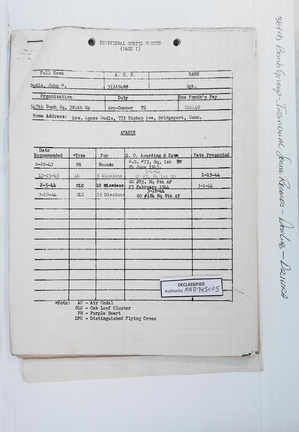 INDIVIDUAL SORTIE RECORD
(PAGE 1)
Full Name A. S. N. RANK
Dudla, John 31134688 Sgt.
Organization Duty One Month's Pay
547th Bomb Sq, 384th Gp Arm-Gunner TG
Home Address: Mrs. Agnes Dudla, 733 Bishop Ave, Bridgeport, Conn.
AWARDS
Date Recommended *Type For G. O. Awarding & Date Date Presented
6-22-43 PH Wounds G.O. #73, Hq. 1st BW
24 June 1943.
12-23-43 AM 5 Missions 1-15-44
2-5-44 OLC 10 Missions GO #85, Hq 8th AF
23 February 1944 3-1-44
3-10-44 OLC 15 Missions 3-18-44
GO #184 Hq 8th AF
DECLASSIFIED
Authority NND 745005
*Note: AM - Air Medal
OLC - Oak Leaf Cluster
PH - Purple Heart
DFC - Distinguished Flying Cross
384th Bomb Group - Individual Sortie Records -